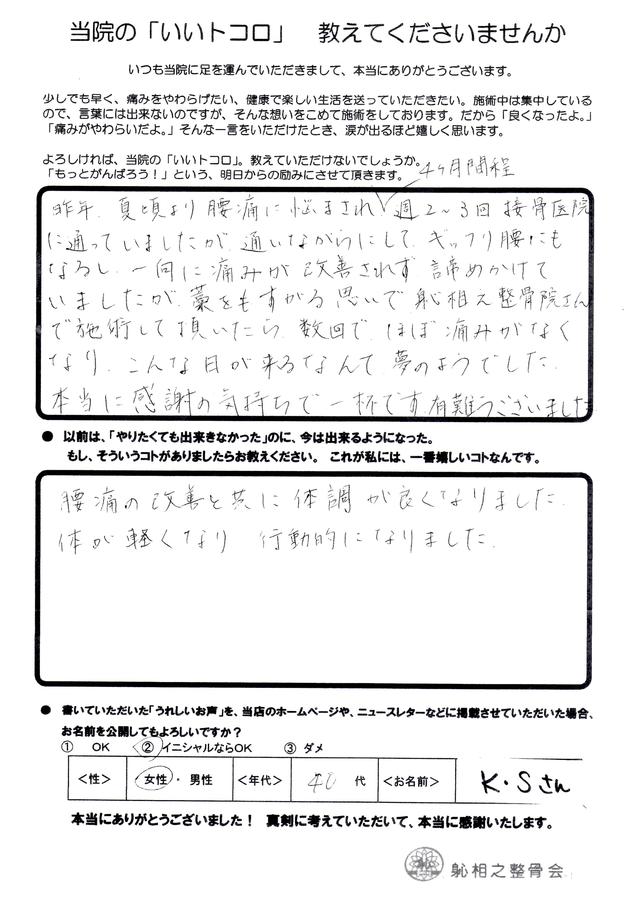 当院の「いいトコロ」　教えてくださいませんか
いつも当院に足を運んでいただきまして、本当にありがとうございます。
少しでも早く、痛みをやわらげたい、健康で楽しい生活を送っていただきたい。施術中は集中している
ので、言葉には出来ないのですが、そんな想いをこめて施術をしております。だから「良くなったよ。」
「痛みがやわらいだよ。」そんな一言をいただけたとき、涙が出るほど嬉しく思います。
よろしければ、当院の「いいトコロ」。教えていただけないでしょうか。
「もっとがんばろう！」という、明日からの励みにさせて頂きます。
4ヶ月間程
昨年、夏頃より腰痛に悩まされ 週2~3回 接骨医院
に通っていましたが、通いながらにして、ギックリ腰にも
なるし、一向に痛みが改善されず 諦めかけて
いましたが、藁をもすがる思いで 躰相之整骨院さん
で施術して頂いたら、数回で、ほぼ痛みがなく
なり、こんな日が来るなんて、夢のようでした。
本当に感謝の気持ちで一杯です。有難うございました
● 以前は、「やりたくても出来きなかった」のに、今は出来るようになった。
もし、そういうコトがありましたらお教えください。　これが私には、一番嬉しいコトなんです。
腰痛の改善と共に 体調が良くなりました。
体が軽くなり 行動的になりました。
● 書いていただいた「うれしいお声」を、当店のホームページや、ニュースレターなどに掲載させていただいた場合、
お名前を公開してもよろしいですか？
① OK ②イニシャルならOK ③ ダメ
＜性＞ 女性・男性 ＜年代＞ 40 代 ＜お名前＞ K・Sさん
本当にありがとうございました！　真剣に考えていただいて、本当に感謝いたします。
躰相之整骨会